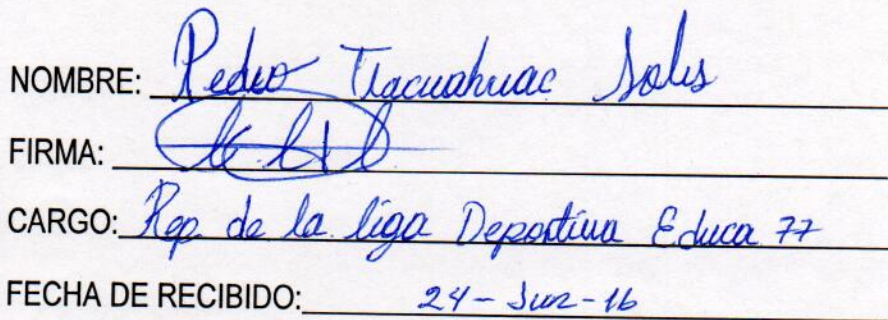 NOMBRE: Pedro Tlacuahuac Solis
FIRMA:
CARGO: Rep. de la liga Deportiva Educa 77
FECHA DE RECIBIDO: 24-Jun-16